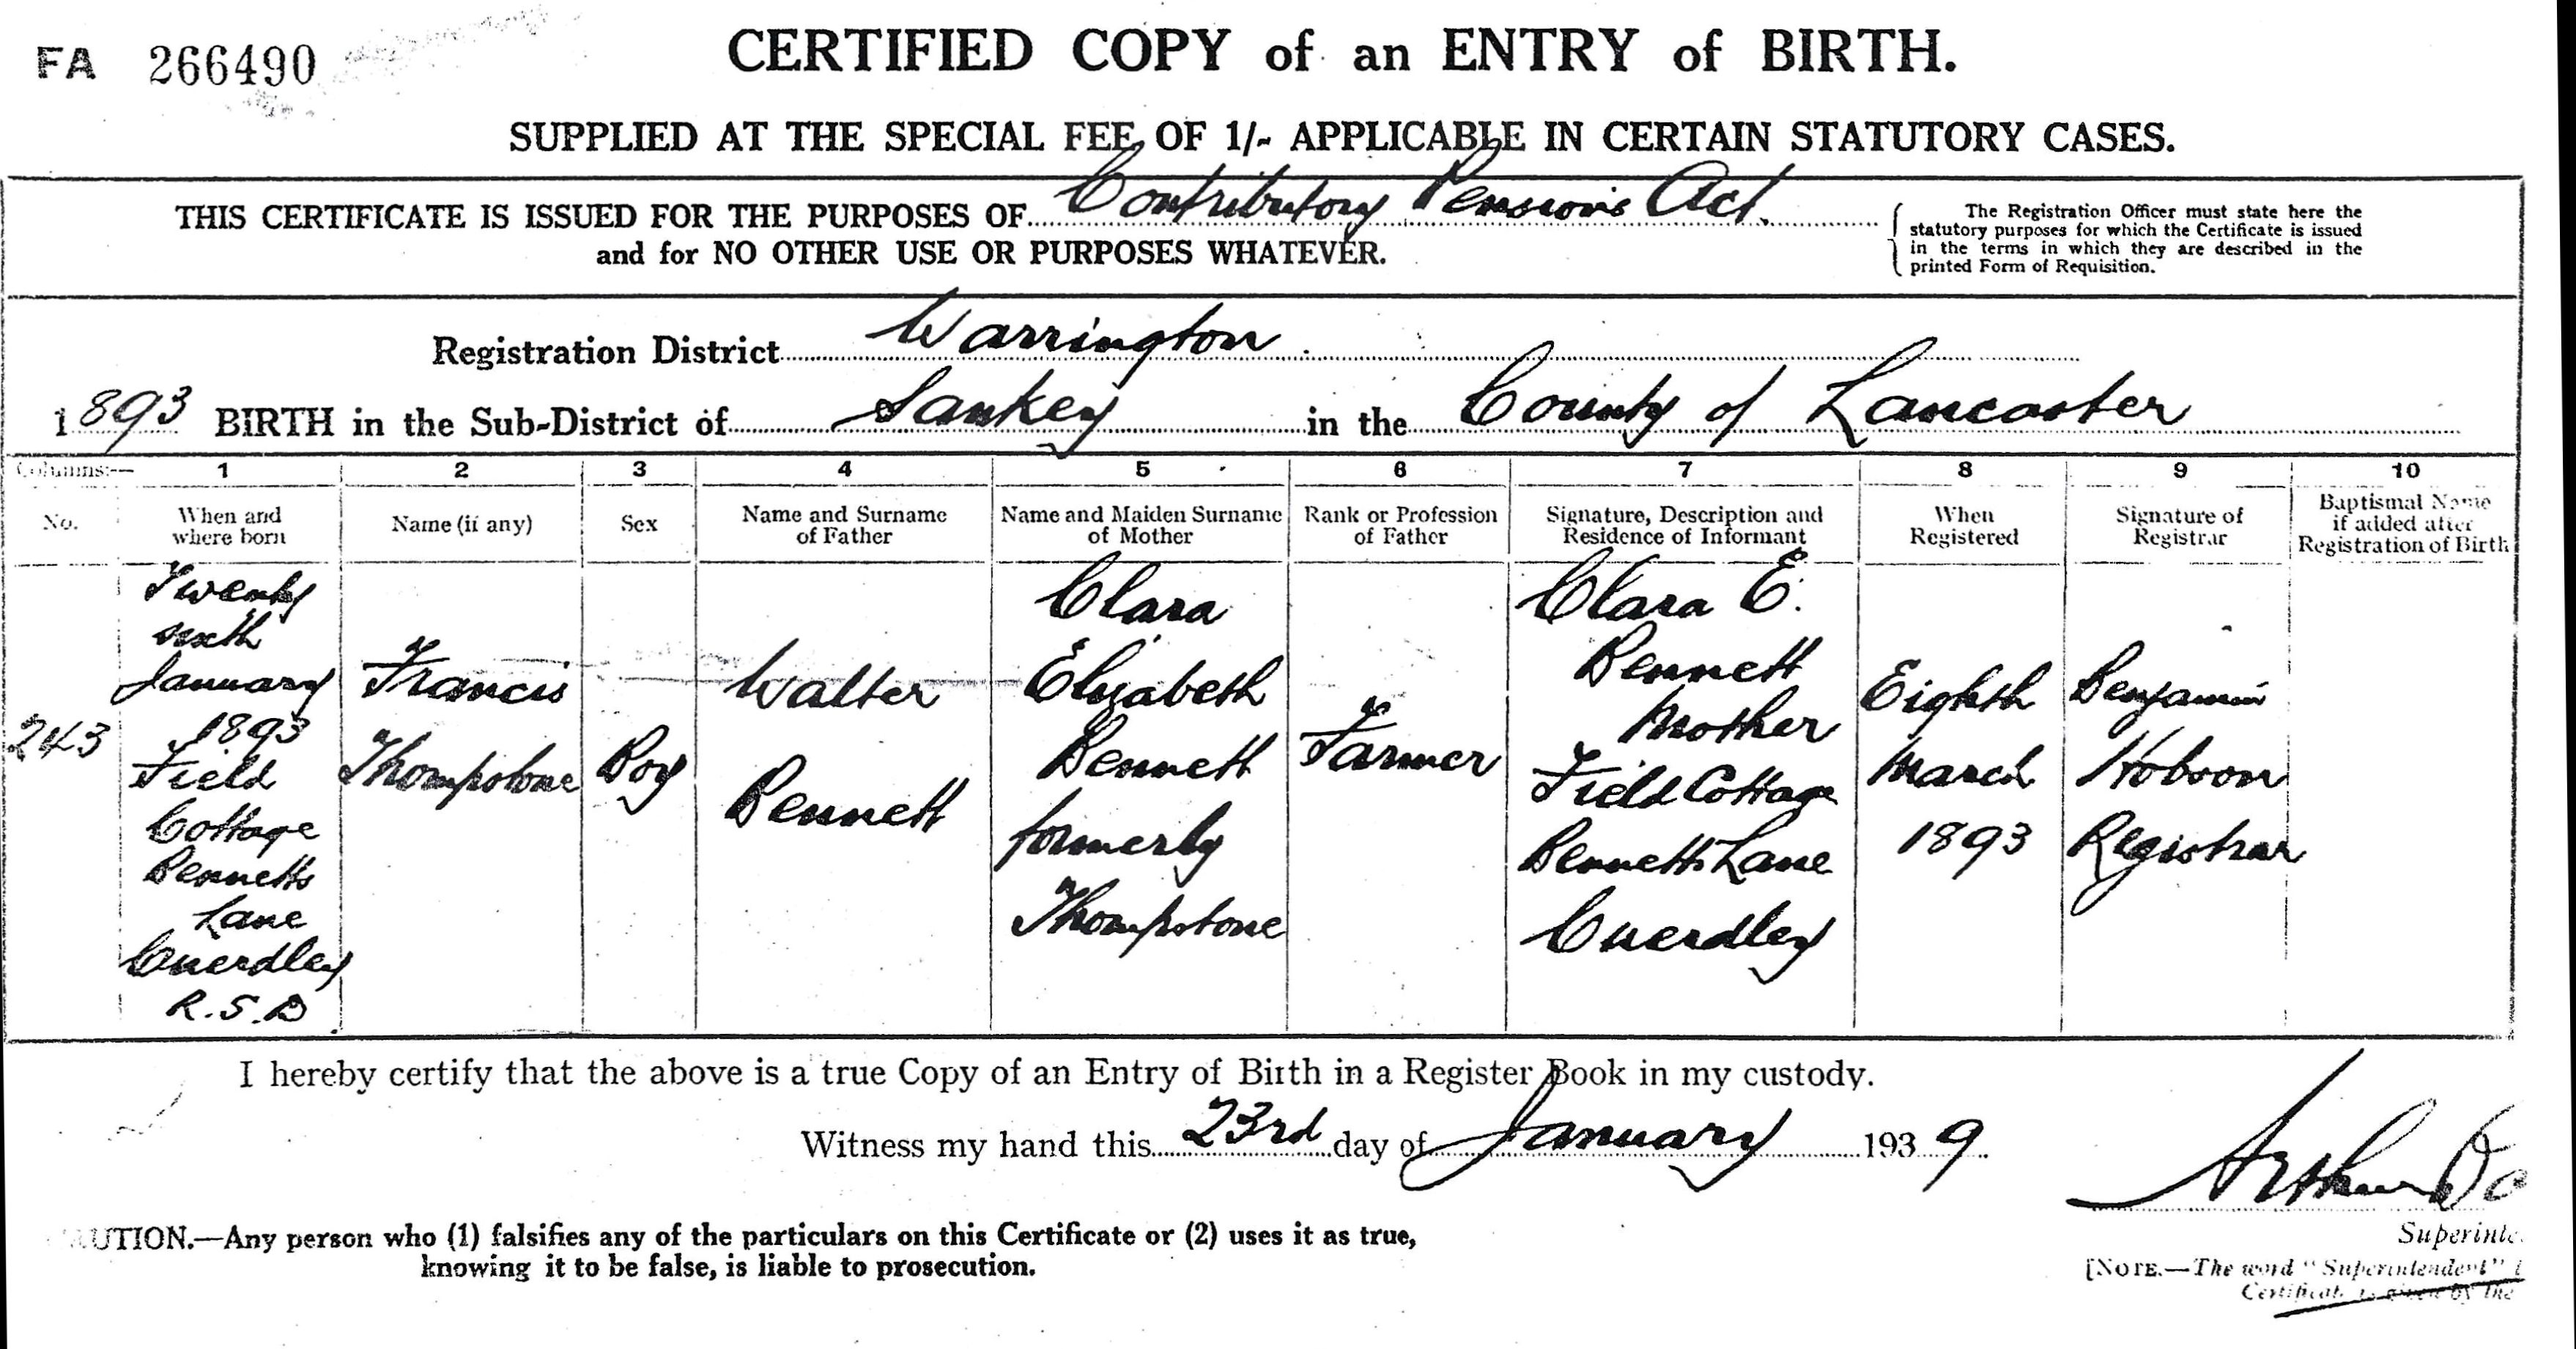 FA 266490
CERTIFIED COPY of an ENTRY of BIRTH.
SUPPLIED AT THE SPECIAL FEE OF 1/- APPLICABLE IN CERTAIN STATUTORY CASES.
THIS CERTIFICATE IS ISSUED FOR THE PURPOSES OF Contributory Pensions Act.
and for NO OTHER USE OR PURPOSES WHATEVER.
The Registration Officer must state here the
statutory purposes for which the Certificate is issued
in the terms in which they are described in the
printed Form of Requisition.
Registration District Warrington
1893 BIRTH in the Sub-District of Sankey in the County of Lancaster
Columns:— 1 2 3 4 5 6 7 8 9 10
No.
When and
where born
Name (if any)
Sex
Name and Surname
of Father
Name and Maiden Surname
of Mother
Rank or Profession
of Father
Signature, Description and
Residence of Informant
When
Registered
Signature of
Registrar
Baptismal Name
if added after
Registration of Birth
243
Twenty
sixth
January
1893
Field
Cottage
Bennetts
Lane
Cuerdley
R.S.D
Francis
Thompstone
Boy
Walter
Bennett
Clara
Elizabeth
Bennett
formerly
Thompstone
Farmer
Clara E.
Bennett
Mother
Field Cottage
Bennetts Lane
Cuerdley
Eighth
March
1893
Benjamin
Hobson
Registrar
I hereby certify that the above is a true Copy of an Entry of Birth in a Register Book in my custody.
Witness my hand this 23rd day of January 1939.
Arthur
Superinte
UTION.—Any person who (1) falsifies any of the particulars on this Certificate or (2) uses it as true,
knowing it to be false, is liable to prosecution.
[NOTE.—The word "Superintendent"
Certificate is given by the